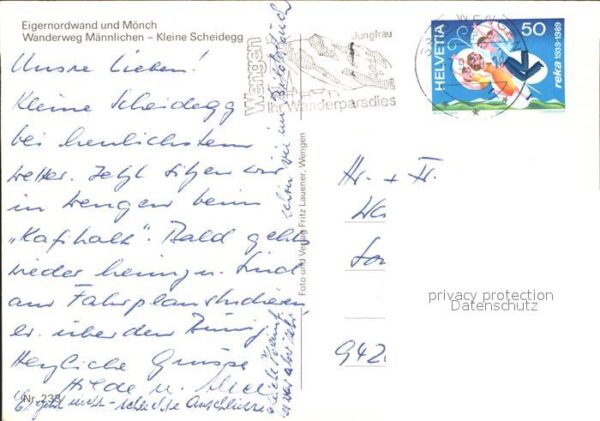 Eigernordwand und Mönch
Wanderweg Männlichen – Kleine Scheidegg
Unsre Lieben!
Kleine Scheidegg
bei herrlichstem
Wetter. Jetzt sitzen wir
in Wengen beim
"Kaffihalt". Bald geht
wieder heimzu. Sind
am Fahrplanstudieren
ev. über den Brünig.
Herzliche Grüsse
Hilde u.
Es geht nicht – schlechte Anschlüsse
Nr. 233
schon viel im Bilderbuch
Foto und Verlag Fritz Lauener, Wengen
Wengen
Jungfrau
Ihr Wanderparadies
3823 WENGEN
HELVETIA
50
reka 1939-1989
Hr. + Fr.
942
privacy protection
Datenschutz